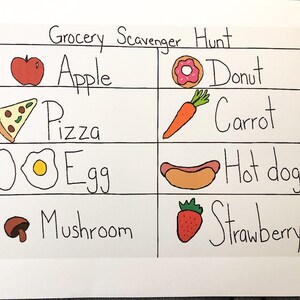 Grocery Scavenger Hunt
Apple
Donut
Pizza
Carrot
Egg
Hot dog
Mushroom
Strawberry